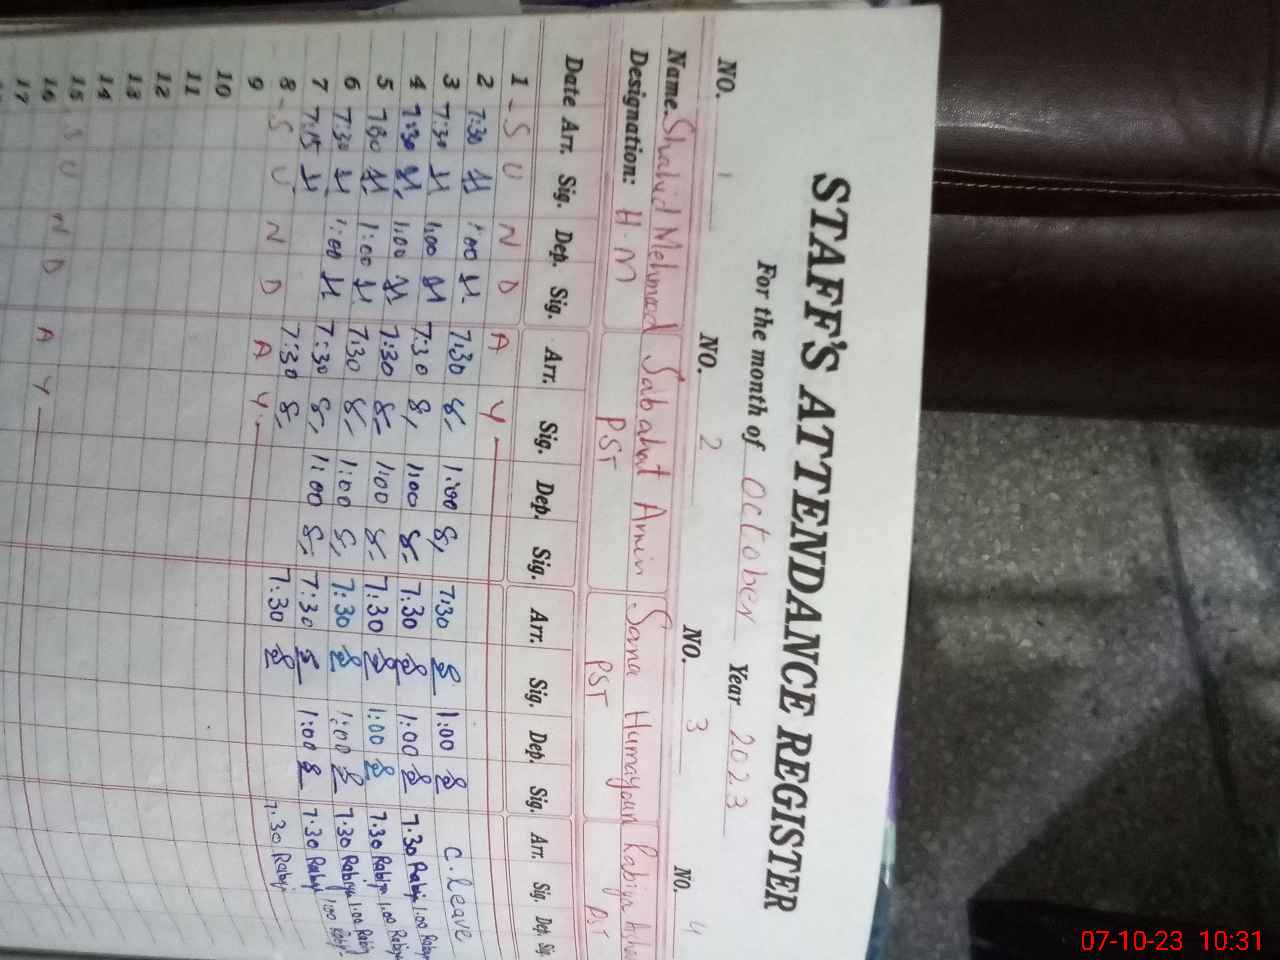 STAFF'S ATTENDANCE REGISTER
For the month of October Year 2023
NO. 1 NO. 2 NO. 3 NO. 4
Name. Shahid Mehmood Sabahat Amin Sana Humayoun Rabiya
Designation: H.M PST PST PST
Date Arr. Sig. Dep. Sig. Arr. Sig. Dep. Sig. Arr. Sig. Dep. Sig. Arr. Sig. Dep. Sig.
1 - S U N D A Y -
2 7:30 1:00 7:30 1:00 7:30 1:00 C. leave
3 7:30 1:00 7:30 1:00 7:30 1:00 7:30 1:00
4 7:30 1:00 7:30 1:00 7:30 1:00 7:30 1:00
5 7:30 1:00 7:30 1:00 7:30 1:00 7:30 1:00
6 7:30 1:00 7:30 1:00 7:30 1:00 7:30 1:00
7 7:15 7:30 7:30 7:30
8 - S U N D A Y -
9
10
11
12
13
14
15 S U N D A Y
16
17
07-10-23 10:31